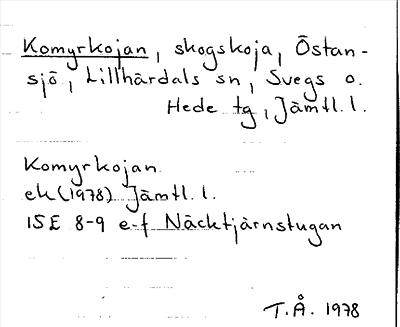 Komyrkojan, skogskoja, Östan-
sjö, Lillhärdals sn, Svegs o.
Hede tg, Jämtl. l.
Komyrkojan
ek (1978) Jämtl. l.
15E 8-9 e-f Näcktjärnstugan
T.Å. 1978